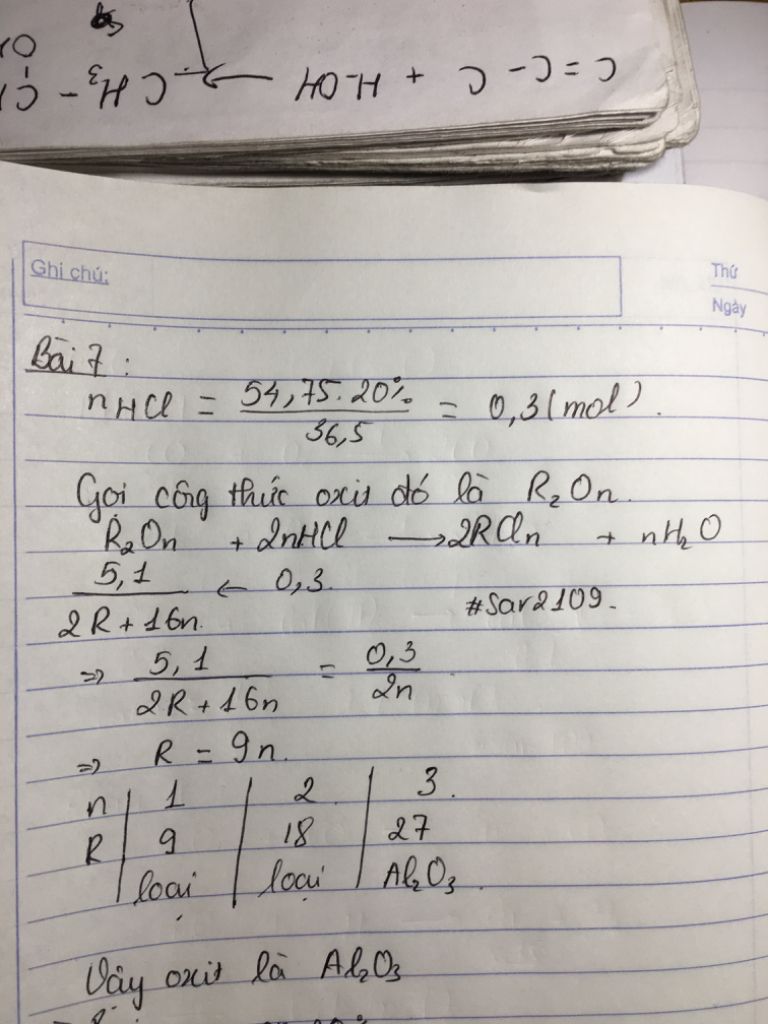 C = C - C + H-OH
CH3 -
Ghi chú:
Thứ
Ngày
Bài 7 :
nHCl = 54,75.20% / 36,5 = 0,3(mol).
Gọi công thức oxit đó là R2On.
R2On + 2nHCl → 2RCln + nH2O
5,1 / 2R + 16n ← 0,3.
#Sar2109.
=> 5,1 / 2R + 16n = 0,3 / 2n
=> R = 9n.
n | 1 | 2 | 3.
R | 9 | 18 | 27
loại | loại | Al2O3.
Vậy oxit là Al2O3